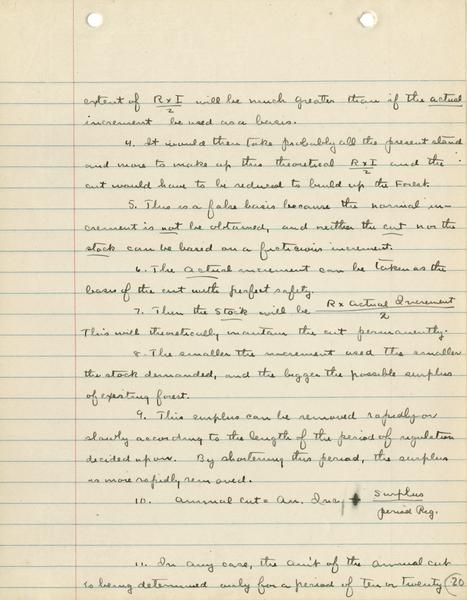 extent of R x I / 2 will be much greater than if the actual
increment be used as a basis.
4. It would then take probably all the present stand
and more to make up this theoretical R x I / 2 and the
cut would have to be reduced to build up the Forest.
5. This is a false basis because the normal in-
crement is not be obtained, and neither the cut nor the
stock can be based on a ficticious increment.
6. The actual increment can be taken as the
basis of the cut with perfect safety.
7. Then the stock will be R x Actual Increment / 2
This will theoretically maintain the cut permanently.
8. The smaller the increment used the smaller
the stock demanded, and the bigger the possible surplus
of existing forest.
9. This surplus can be removed rapidly or
slowly according to the length of the period of regulation
decided upon. By shortening this period, the surplus
is more rapidly removed.
10. Annual cut = An. Inc. + Surplus / period Reg.
11. In any case, the am't of the annual cut
is being determined only for a period of ten or twenty (20